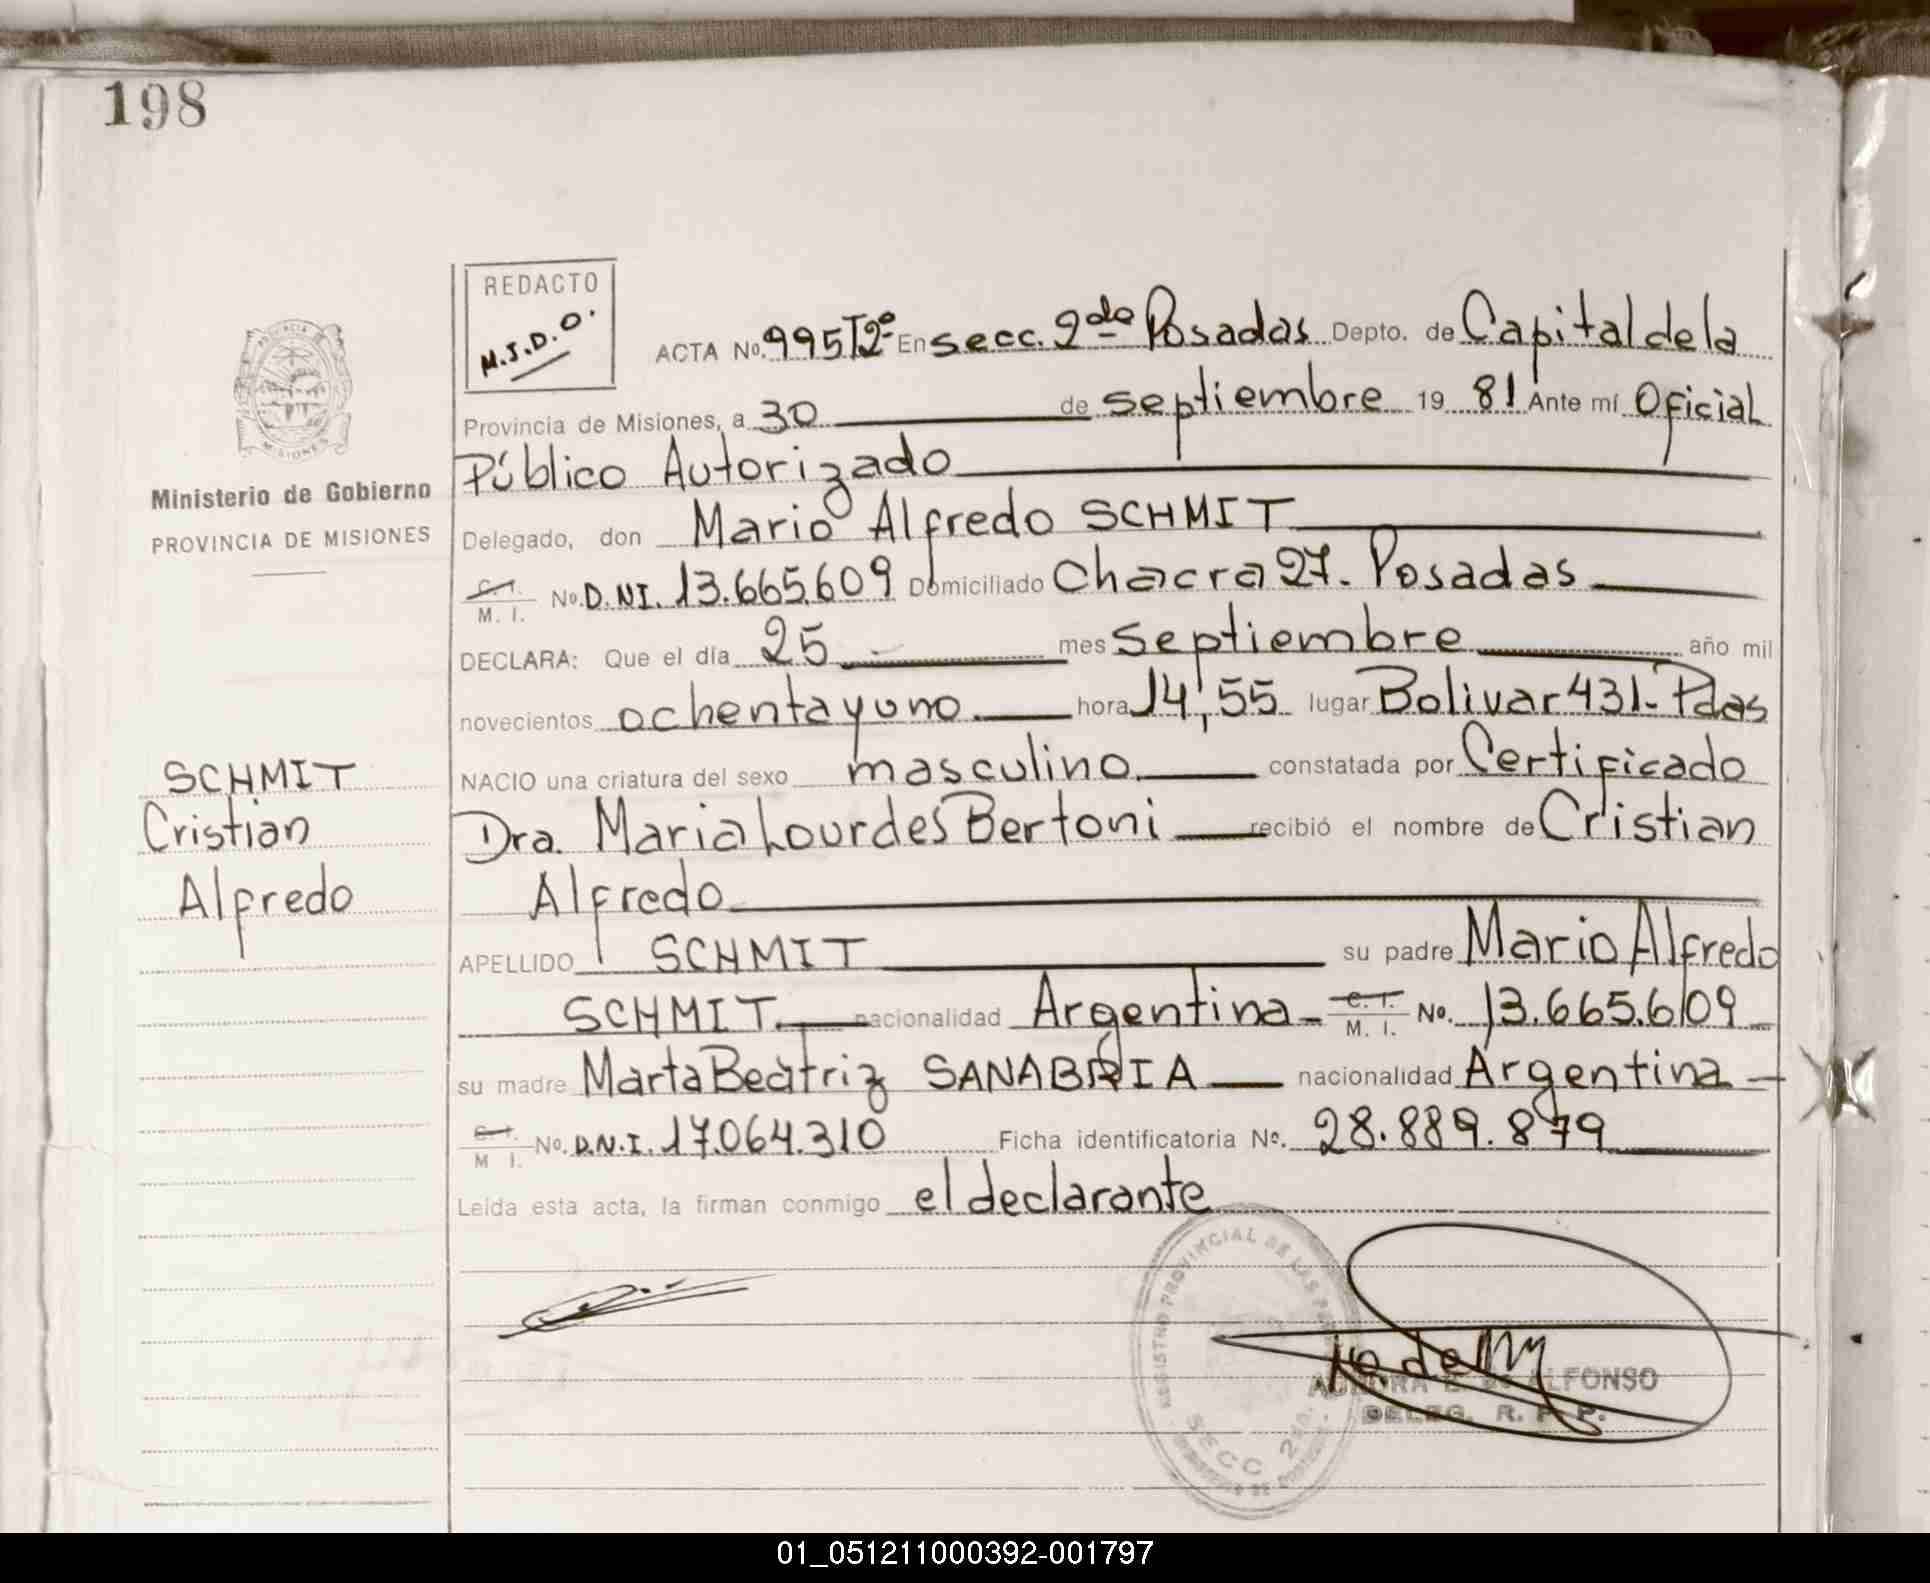 198
REDACTO
M.J.D.O.
ACTA No. 995T2º En secc. 2da Posadas Depto. de Capital de la
Provincia de Misiones, a 30 de septiembre 19 81 Ante mí Oficial
Público Autorizado
Delegado, don Mario Alfredo SCHMIT
C. I. M. I. No. D.NI. 13.665.609 Domiciliado Chacra 27. Posadas
DECLARA: Que el día 25 mes septiembre año mil
novecientos ochenta y uno hora 14,55 lugar Bolivar 431- Pdas
NACIO una criatura del sexo masculino constatada por Certificado
Dra. Maria Lourdes Bertoni recibió el nombre de Cristian
Alfredo
APELLIDO SCHMIT su padre Mario Alfredo
SCHMIT nacionalidad Argentina C. I. M. I. No. 13.665.609
su madre Marta Beatriz SANABRIA nacionalidad Argentina
C. I. M I. No. D.N.I. 17.064.310 Ficha identificatoria No. 28.889.879
Leída esta acta, la firman conmigo el declarante
PROVINCIA
MISIONES
Ministerio de Gobierno
PROVINCIA DE MISIONES
SCHMIT
Cristian
Alfredo
REGISTRO PROVINCIAL DE LAS
SECC 2da.
ALFONSO
DELEG. R. P. P.
01_051211000392-001797